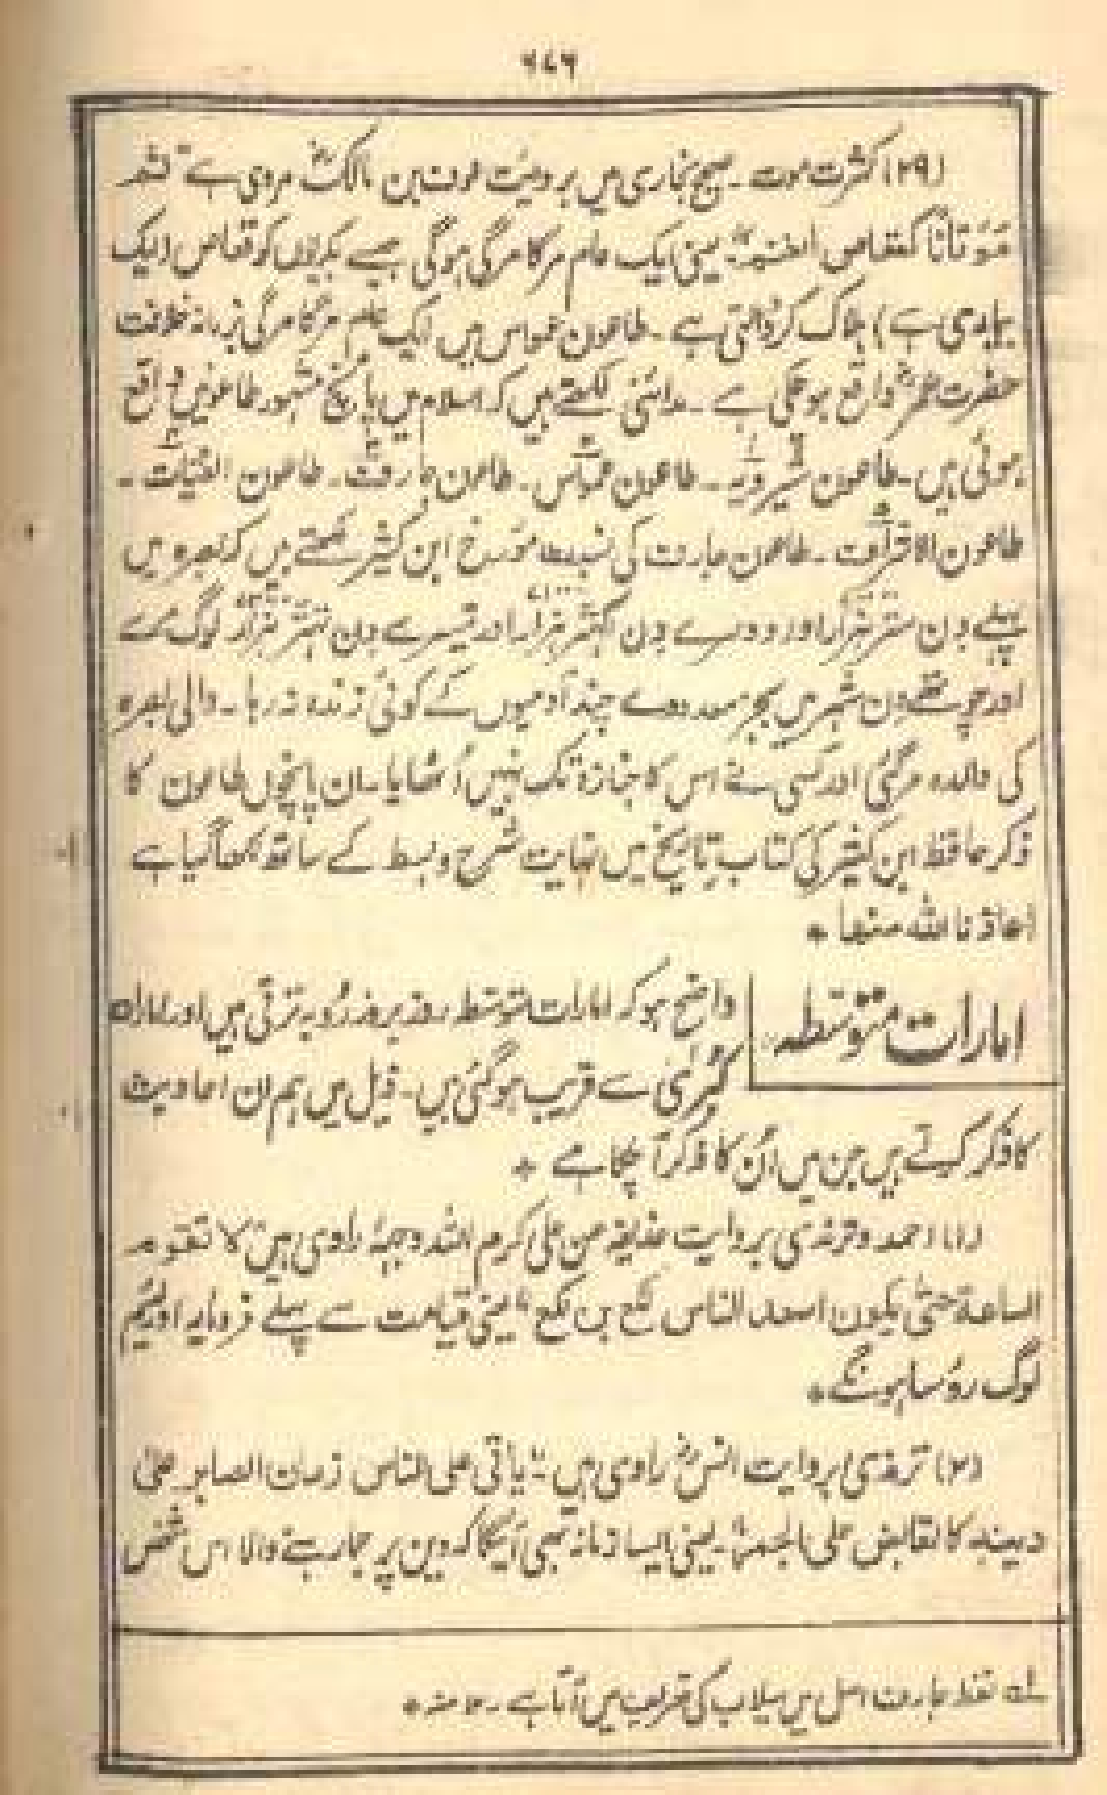 ۶۷۶
(۲۹) کثرت موت ۔ صحیح بخاری میں بروایت عوف بن مالکؓ مروی ہے "ثم
موتاناً کقعاص الغنم" یعنی ایک عام مرگامرگی ہوگی جیسے بکریوں کو قعاص (ایک
بیماری ہے) ہلاک کرڈالتی ہے ۔ طاعون عمواس میں ایک عام مرگامرگی بزمانہ خلافت
حضرت عمرؓ واقع ہوچکی ہے ۔ مدائنی لکھتے ہیں کہ اسلام میں پانچ مشہور طاعونیں واقع
ہوئی ہیں ۔ طاعون شیرویہ ۔ طاعون عمواس ۔ طاعون جارف ۔ طاعون الفتیات ۔
طاعون الاشراف ۔ طاعون جارف کی نسبت مؤرخ ابن کثیر لکھتے ہیں کہ بصرہ میں
پہلے دن ستر ہزار اور دوسرے دن اکہتر ہزار اور تیسرے دن تہتر ہزار لوگ مرے
اور چوتھے دن شہر میں بجز معدودے چند آدمیوں کے کوئی زندہ نہ رہا ۔ والی بصرہ
کی والدہ مرگئی اور کسی نے اس کا جنازہ تک نہیں اُٹھایا ۔ ان پانچوں طاعون کا
ذکر حافظ ابن کثیر کی کتاب تاریخ میں نہایت شرح و بسط کے ساتھ لکھا گیا ہے
اعاذنا الله منها *
امارات متوسطہ
واضح ہو کہ امارات متوسط روز بروز رُو بہ ترقی ہیں اور امارات
کبریٰ سے قریب ہوگئی ہیں ۔ ذیل میں ہم ان احادیث
کا ذکر کرتے ہیں جن میں اُن کا ذکر آ چکا ہے *
(۱) احمد و ترمذی بروایت حذیفہ من علی کرم اللہ وجہہٗ راوی ہیں "لا تقوم
الساعة حتیٰ یکون اسعد الناس لکع بن لکع" یعنی قیامت سے پہلے فرومایہ اور لئیم
لوگ رؤسا ہونگے *
(۲) ترمذی بروایت انسؓ راوی ہیں ۔ "یأتی علی الناس زمان الصابر علیٰ
دینه کالقابض علی الجمرة" یعنی ایسا زمانہ بھی آئیگا کہ دین پر جما رہنے والا اس شخص
لہ لفظ جارف اصل میں سیلاب کی تعریف میں آتا ہے ۔ منہ *